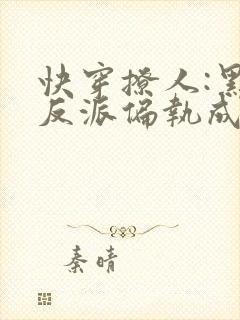 快穿撩人:黑
反派偏執成
秦晴